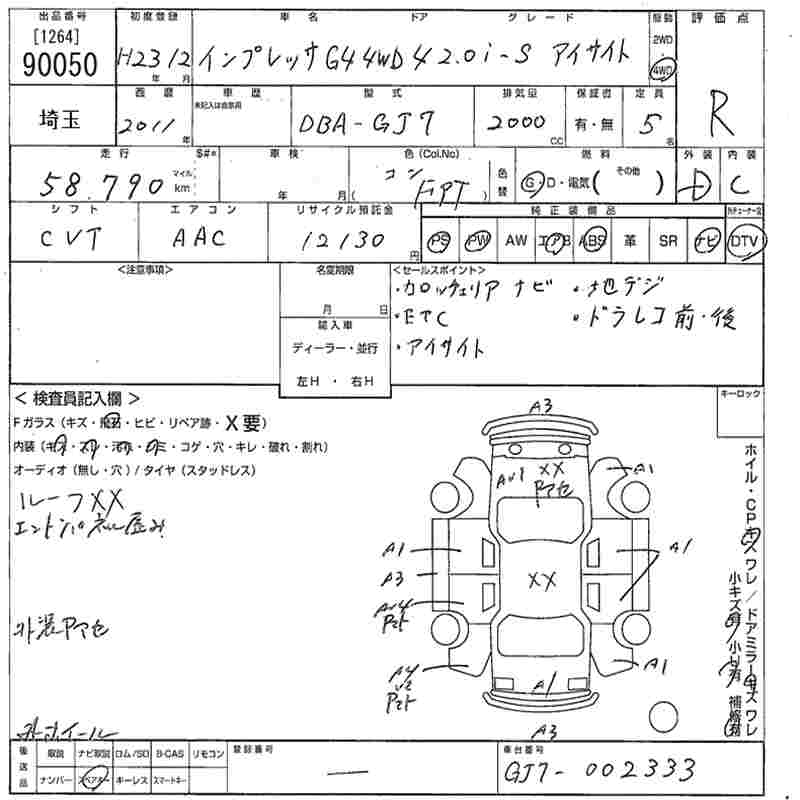 出品番号 初度登録 車名 ドア グレード 駆動 評価点
[1264] 90050 H23 12 年 月 インプレッサG4 4WD 4 2.0i-S アイサイト 2WD 4WD R
埼玉 西暦 2011 年 車歴 未記入は自家用 型式 DBA-GJ7 排気量 2000 CC 保証書 有・無 定員 5 名
走行 S#* 車検 色(Col.No) 燃料 外装 内装
58.790 マイル km 年 月 コン FPT 色替 G・D・電気( その他 ) D C
シフト エアコン リサイクル預託金 純正装備品
CVT AAC 12130 円 PS PW AW エアB ABS 革 SR ナビ DTV
<注意事項> 名変期限 <セールスポイント>
月 日 ・カロッツェリア ナビ ・地デジ
輸入車 ・ETC ・ドラレコ前・後
ディーラー・並行 ・アイサイト
左H ・ 右H
< 検査員記入欄 > キーロック
Fガラス(キズ・飛石・ヒビ・リペア跡・X要)
内装(キズ・スレ・汚れ・シミ・コゲ・穴・キレ・破れ・割れ)
オーディオ(無し・穴)/タイヤ(スタッドレス)
ルーフXX
エンドパネル歪み
外装Pアセ
A3
AW1 XX Pアセ A1
A1 A1
A3 XX
AW4
A4 A1 A1
A3
ホイル・CPキズ ワレ/ドアミラーキズ ワレ
小キズ有 小U有 補修有
後送品 取説 ナビ取説 ロム/SD B-CAS リモコン 登録番号 車台番号
ナンバー スペアキー キーレス スマートキー — GJ7-002333